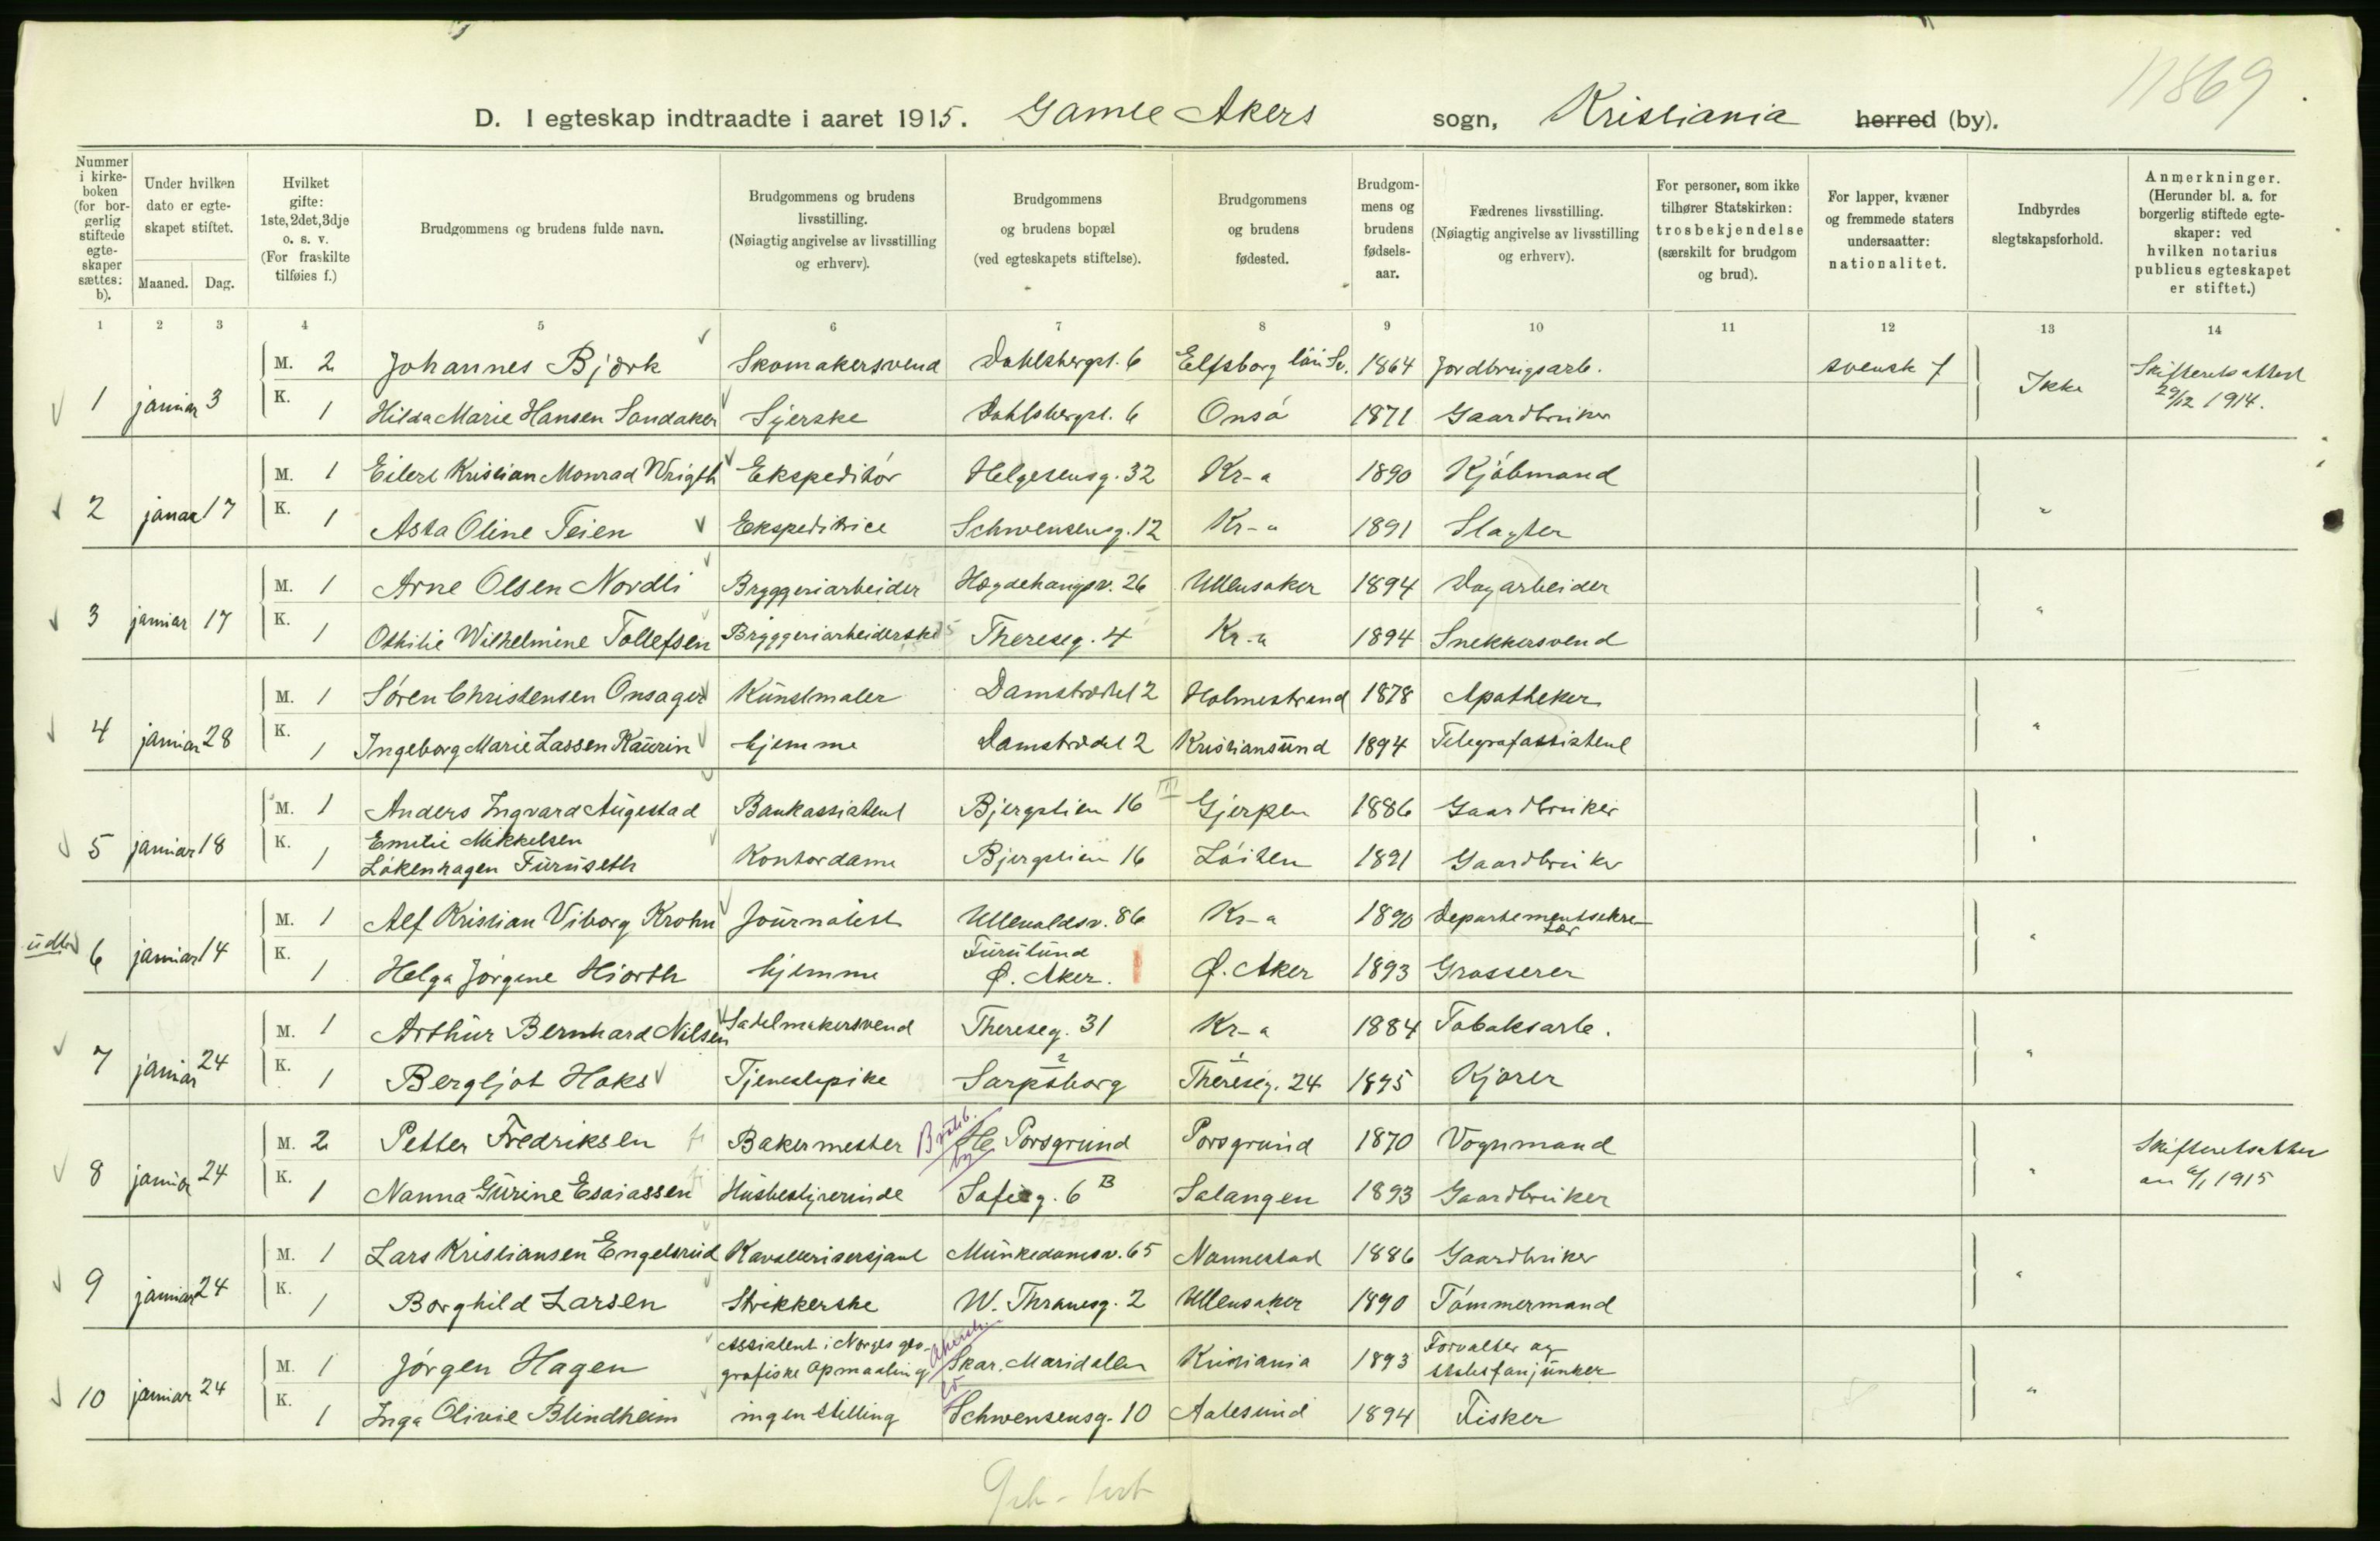 11869
D. I egteskap indtraadte i aaret 1915. Gamle Akers sogn, Kristiania herred (by).
Nummer i kirkeboken (for borgerlig stiftede egteskaper sættes: b).
Under hvilken dato er egteskapet stiftet.
Maaned. Dag.
Hvilket gifte: 1ste, 2det, 3dje o. s. v. (For fraskilte tilføies f.)
Brudgommens og brudens fulde navn.
Brudgommens og brudens livsstilling. (Nøiagtig angivelse av livsstilling og erhverv).
Brudgommens og brudens bopæl (ved egteskapets stiftelse).
Brudgommens og brudens fødested.
Brudgommens og brudens fødselsaar.
Fædrenes livsstilling. (Nøiagtig angivelse av livsstilling og erhverv).
For personer, som ikke tilhører Statskirken: trosbekjendelse (særskilt for brudgom og brud).
For lapper, kvæner og fremmede staters undersaatter: nationalitet.
Indbyrdes slegtskapsforhold.
Anmerkninger. (Herunder bl. a. for borgerlig stiftede egteskaper: ved hvilken notarius publicus egteskapet er stiftet.)
1 2 3 4 5 6 7 8 9 10 11 12 13 14
1 januar 3 M. 2 Johannes Bjørk Skomakersvend Dahlsbergst. 6 Elfsborg län Sv. 1864 Jordbrugsarb. svensk Ikke Skifteretsattest 29/12 1914.
K. 1 Hilda Marie Hansen Sandaker Syerske Dahlsbergst. 6 Onsø 1871 Gaardbruker
2 januar 17 M. 1 Eilert Kristian Monrad Wrigth Ekspeditør Helgesensg. 32 Kr-a 1890 Kjøbmand "
K. 1 Asta Oline Teien Ekspeditrice Schwensensg. 12 Kr-a 1891 Slagter
3 januar 17 M. 1 Arne Olsen Nordli Bryggeriarbeider Hægdehaugsv. 26 Ullensaker 1894 Dagarbeider "
K. 1 Othilie Wilhelmine Tollefsen Bryggeriarbeiderske Thereseg. 4 Kr-a 1894 Snekkersvend
4 januar 28 M. 1 Søren Christensen Onsager Kunstmaler Damstrædet 2 Holmestrand 1878 Apotheker "
K. 1 Ingeborg Marie Lassen Kaurin hjemme Damstrædet 2 Kristiansund 1894 Telegrafassistent
5 januar 18 M. 1 Anders Ingvard Augestad Bankassistent Bjergstien 16 III Gjerpen 1886 Gaardbruker "
K. 1 Emilie Mikkelsen Løkenhagen Furuseth Kontordame Bjergstien 16 Løiten 1891 Gaardbruker
6 januar 14 M. 1 Alf Kristian Viborg Krohn Journalist Ullevoldsv. 86 Kr-a 1890 Departementsekretær "
K. 1 Helga Jørgine Hiorth hjemme Furulund Ø. Aker. Ø. Aker 1893 Grosserer
7 januar 24 M. 1 Arthur Bernhard Nilsen Sadelmakersvend Thereseg. 31 Kr-a 1884 Tobaksarb. "
K. 1 Bergljot Hoks Tjenestepike 2 Sarpsborg 1 Thereseg. 24 1895 Kjører
8 januar 24 M. 2 Petter Fredriksen Bakermester Porsgrund Porsgrund 1870 Vognmand " Skifteretsattest
K. 1 Nanna Gurine Esaiassen Husbestyrerinde Sofieg. 6 B Salangen 1893 Gaardbruker 1915
9 januar 24 M. 1 Lars Kristiansen Engelsrud Kavallerisersjant Munkedamsv. 65 Nannestad 1886 Gaardbruker "
K. 1 Borghild Larsen Strikkerske W. Thranesg. 2 Ullensaker 1890 Tømmermand
10 januar 24 M. 1 Jørgen Hagen Assistent i Norges geografiske Opmaaling Skar. Maridalen Kristiania 1893 Forvalter og "
K. 1 Inga Olivie Blindheim ingen stilling Schwensensg. 10 Aalesund 1894 Fisker